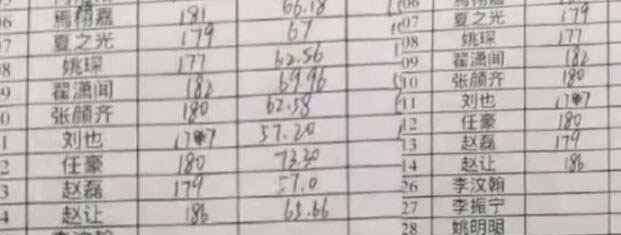 6 焉栩嘉 181 66.18 06 焉栩嘉
7 夏之光 179 67 07 夏之光 179
8 姚琛 177 62.56 08 姚琛 177
9 翟潇闻 182 69.96 09 翟潇闻 182
0 张颜齐 180 62.58 10 张颜齐 180
1 刘也 177 57.20 11 刘也 177
2 任豪 180 73.30 12 任豪 180
3 赵磊 179 57.0 13 赵磊 179
4 赵让 186 63.66 14 赵让 186
26 李汶翰
27 李振宁
28 姚明明